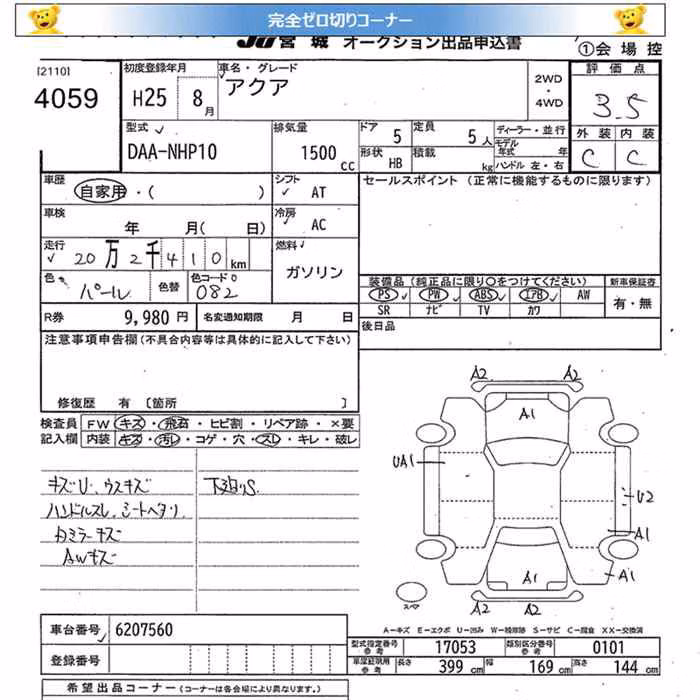 完全ゼロ切りコーナー
JU 宮城 オークション出品申込書
①会場控
[2110]
4059
初度登録年月
H25 8月
車名・グレード
アクア
2WD
・
4WD
評価点
3.5
型式
DAA-NHP10
排気量
1500 cc
ドア 5
定員 5人
形状 HB
積載 kg
ディーラー・並行
モデル年式 年
ハンドル 左・右
外装 内装
C C
車歴
自家用・( )
シフト
AT
セールスポイント (正常に機能するものに限ります)
車検
年 月( 日)
冷房
AC
走行
20万2千410km
燃料
ガソリン
色
パール
色替
色コードNo
082
装備品 (純正品に限り○をつけてください)
新車保証書
PS PW ABS エアB AW
有・無
SR ナビ TV カワ
R券 9,980 円
名変通知期限 月 日
後日品
注意事項申告欄(不具合内容等は具体的に記入して下さい)
修復歴 有 [箇所 ]
検査員
記入欄
FW キズ・飛石・ヒビ割・リペア跡・×要
内装 キズ・汚レ・コゲ・穴・スレ・キレ・破レ
キズU、ウスキズ
下廻りS
ハンドルスレ、シートヘタリ
ミラーキズ
AWキズ
A2 A2
A1
UA1
U2
A1
A1
A1
A2 A2
スペア
A-キズ E-エクボ U-凹み W-補修跡 S-サビ C-腐食 XX-交換済
車台番号 6207560
登録番号
型式指定番号
参考
17053
類別区分番号
参考
0101
車庫証明用
参考
長さ 399 cm
幅 169 cm
高さ 144 cm
希望出品コーナー (コーナーは各会場により異なります。)